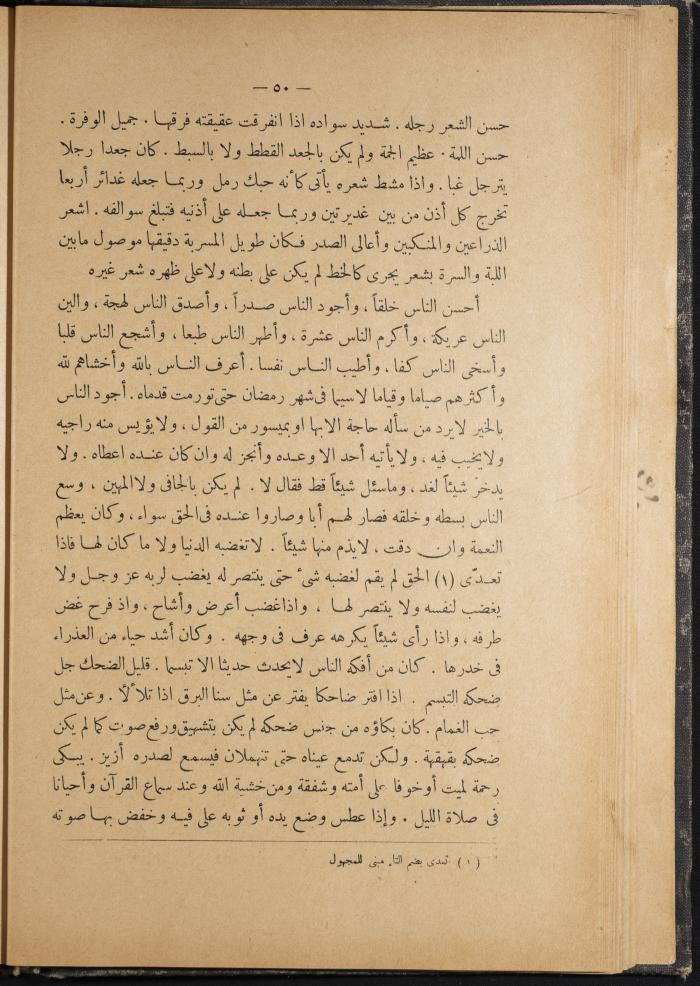 — ٥٠ —
حسن الشعر رجله . شديد سواده اذا انفرقت عقيقته فرقها . جميل الوفرة .
حسن اللمة . عظيم الجمة ولم يكن بالجعد القطط ولا بالسبط . كان جعدا رجلا
يترجل غبا . واذا مشط شعره يأتى كأنه حبك رمل وربما جعله غدائر أربعا
تخرج كل أذن من بين غديرتين وربما جعله على أذنيه فتبلغ سوالفه . اشعر
الذراعين والمنكبين وأعالى الصدر فكان طويل المسربة دقيقها موصول مابين
اللبة والسرة بشعر يجرى كالخط لم يكن على بطنه ولاعلى ظهره شعر غيره
أحسن الناس خلقاً ، وأجود الناس صدراً ، وأصدق الناس لهجة ، والين
الناس عريكة ، وأكرم الناس عشرة ، وأطهر الناس طبعا ، وأشجع الناس قلبا
وأسخى الناس كفا ، وأطيب الناس نفسا . أعرف الناس بالله وأخشاهم لله
وأكثرهم صياما وقياما لاسيما فى شهر رمضان حتى تورمت قدماه . أجود الناس
بالخير لايرد من سأله حاجة الابها اوبميسور من القول ، ولايؤيس منه راجيه
ولايخيب فيه ، ولايأتيه أحد الا وعده وأنجز له وان كان عنده اعطاه . ولا
يدخر شيئاً لغد ، وماسئل شيئاً قط فقال لا . لم يكن بالجافى ولا المهين ، وسع
الناس بسطه وخلقه فصار لهم أبا وصاروا عنده فى الحق سواء ، وكان يعظم
النعمة وان دقت ، لايذم منها شيئاً . لاتغضبه الدنيا ولا ما كان لها فاذا
تعدّى (١) الحق لم يقم لغضبه شىء حتى ينتصر له يغضب لربه عز وجل ولا
يغضب لنفسه ولا ينتصر لها ، واذاغضب أعرض وأشاح ، واذ فرح غض
طرفه ، واذا رأى شيئاً يكرهه عرف فى وجهه . وكان أشد حياء من العذراء
فى خدرها . كان من أفكه الناس لايحدث حديثا الا تبسما . قليل الضحك جل
ضحكه التبسم . اذا افتر ضاحكا يفتر عن مثل سنا البرق اذا تلألأ . وعن مثل
حب الغمام . كان بكاؤه من جنس ضحكه لم يكن بتشهيق ورفع صوت كما لم يكن
ضحكه بقهقهة . ولكن تدمع عيناه حتى تنهملان فيسمع لصدره أزيز . يبكى
رحمة لميت أوخوفا على أمته وشفقة ومن خشية الله وعند سماع القرآن وأحيانا
فى صلاة الليل . وإذا عطس وضع يده أو ثوبه على فيه وخفض بها صوته
( ١ ) تعدى بضم التاء مبنى للمجهول